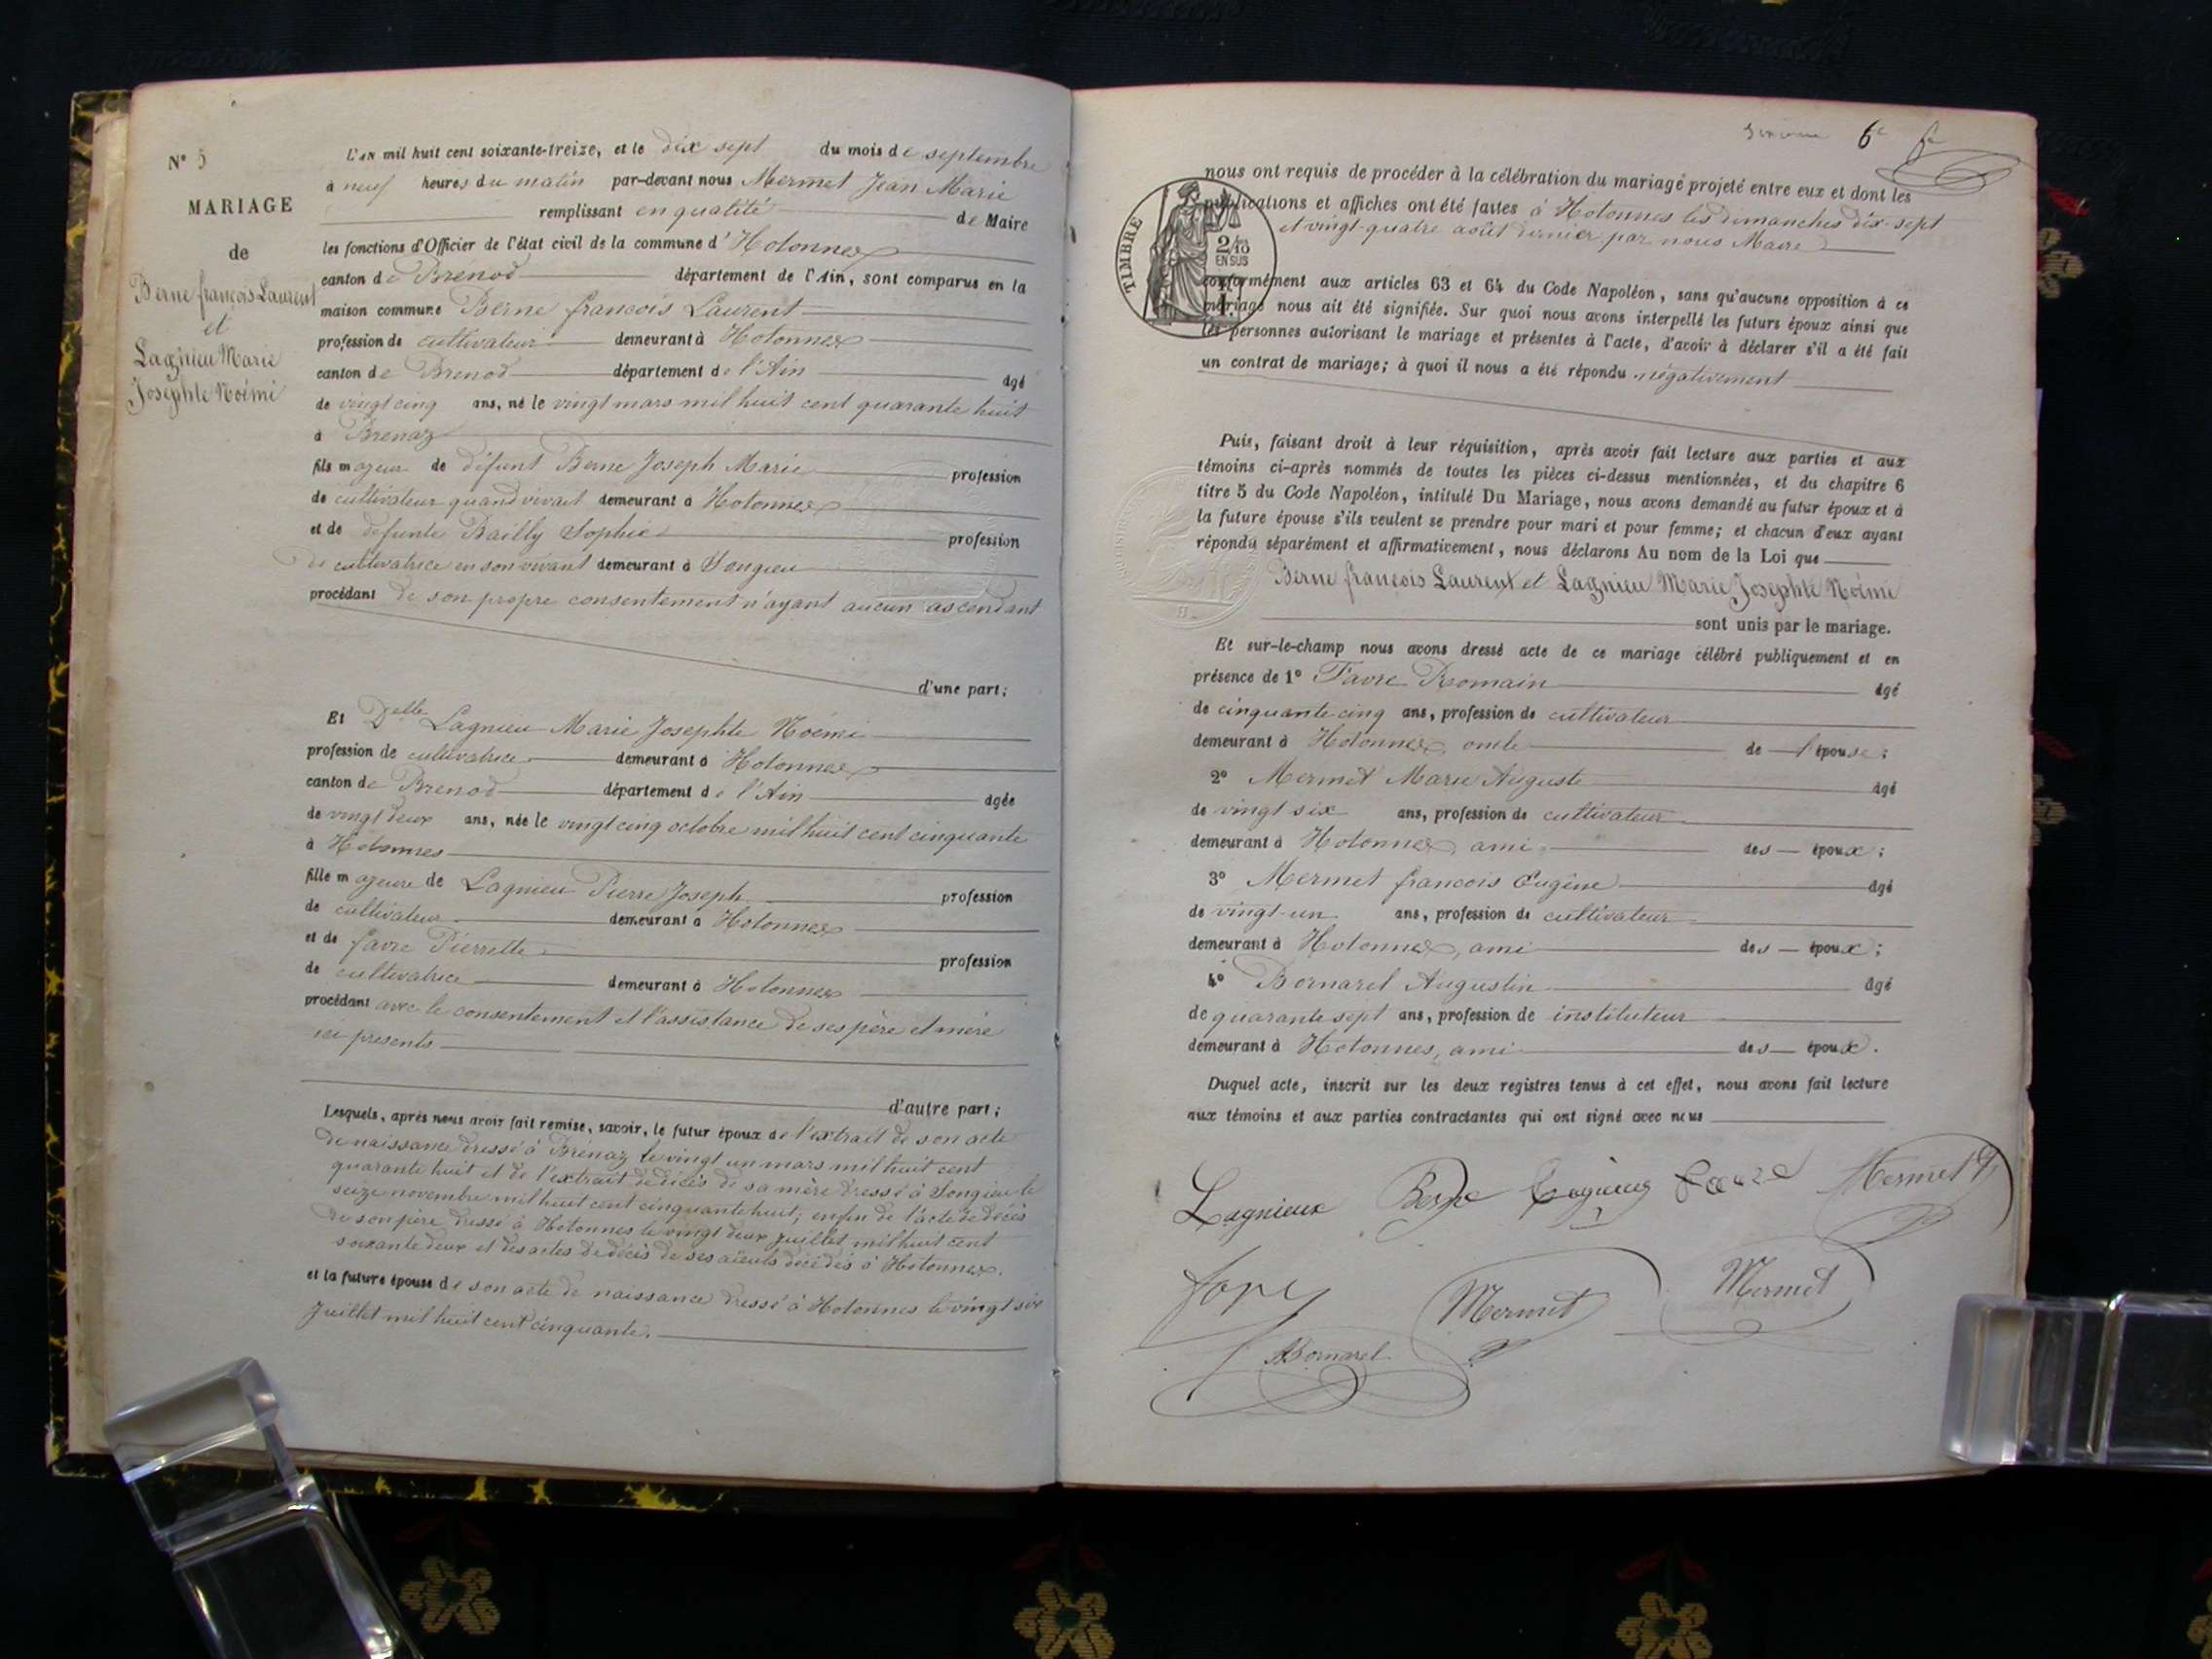 N° 5
MARIAGE
de
Berne françois Laurent
et
Lagnieu Marie
Josephte Noémi
L'AN mil huit cent soixante-treize, et le dix sept du mois de septembre
à neuf heures du matin par-devant nous Mermet Jean Marie
remplissant en qualité de Maire
les fonctions d'Officier de l'état civil de la commune d'Hotonnes
canton de Brénod département de l'Ain, sont comparus en la
maison commune Berne francois Laurent
profession de cultivateur demeurant à Hotonnes
canton de Brenod département de l'Ain âgé
de vingt cinq ans, né le vingt mars mil huit cent quarante huit
à Brenaz
fils majeur de défunt Berne Joseph Marie profession
de cultivateur quand vivait demeurant à Hotonnes
et de défunte Bailly Sophie profession
de cultivatrice en son vivant demeurant à Songieu
procédant de son propre consentement n'ayant aucun ascendant
d'une part;
Et Delle Lagnieu Marie Josephte Noémi
profession de cultivatrice demeurant à Hotonnes
canton de Brenod département de l'Ain âgée
de vingt deux ans, née le vingt cinq octobre mil huit cent cinquante
à Hotonnes
fille majeure de Lagnieu Pierre Joseph profession
de cultivateur demeurant à Hotonnes
et de favre Pierrette profession
de cultivatrice demeurant à Hotonnes
procédant avec le consentement et l'assistance de ses père et mère
ici presents
d'autre part;
Lesquels, après nous avoir fait remise, savoir, le futur époux de l'extrait de son acte
de naissance dressé à Brénaz le vingt un mars mil huit cent
quarante huit et de l'extrait de décès de sa mère dressé à Songieu le
seize novembre mil huit cent cinquante huit; enfin de l'acte de décès
de son père dressé à Hotonnes le vingt deux juillet mil huit cent
soixante deux et des actes de décès de ses aïeuls décédés à Hotonnes.
et la future épouse de son acte de naissance dressé à Hotonnes le vingt six
Juillet mil huit cent cinquante.
6e
nous ont requis de procéder à la célébration du mariage projeté entre eux et dont les
publications et affiches ont été faites à Hotonnes les dimanches dix-sept
et vingt-quatre août dernier par nous Maire
TIMBRE
2/10
EN SUS
1F
conformément aux articles 63 et 64 du Code Napoléon, sans qu'aucune opposition à ce
mariage nous ait été signifiée. Sur quoi nous avons interpellé les futurs époux ainsi que
les personnes autorisant le mariage et présentes à l'acte, d'avoir à déclarer s'il a été fait
un contrat de mariage; à quoi il nous a été répondu négativement
Puis, faisant droit à leur réquisition, après avoir fait lecture aux parties et aux
témoins ci-après nommés de toutes les pièces ci-dessus mentionnées, et du chapitre 6
titre 5 du Code Napoléon, intitulé Du Mariage, nous avons demandé au futur époux et à
la future épouse s'ils veulent se prendre pour mari et pour femme; et chacun d'eux ayant
répondu séparément et affirmativement, nous déclarons Au nom de la Loi que
Berne françois Laurent et Lagnieu Marie Josephte Noémi
sont unis par le mariage.
Et sur-le-champ nous avons dressé acte de ce mariage célébré publiquement et en
présence de 1° Favre Romain âgé
de cinquante cinq ans, profession de cultivateur
demeurant à Hotonnes, oncle de l'épouse;
2° Mermet Marie Auguste âgé
de vingt six ans, profession de cultivateur
demeurant à Hotonnes, ami des époux;
3° Mermet francois Eugène âgé
de vingt-un ans, profession de cultivateur
demeurant à Hotonnes, ami des époux;
4° Bornarel Augustin âgé
de quarante sept ans, profession de instituteur
demeurant à Hotonnes, ami des époux.
Duquel acte, inscrit sur les deux registres tenus à cet effet, nous avons fait lecture
aux témoins et aux parties contractantes qui ont signé avec nous
Lagnieux Berne Mermet
Mermet Mermet
Bornarel